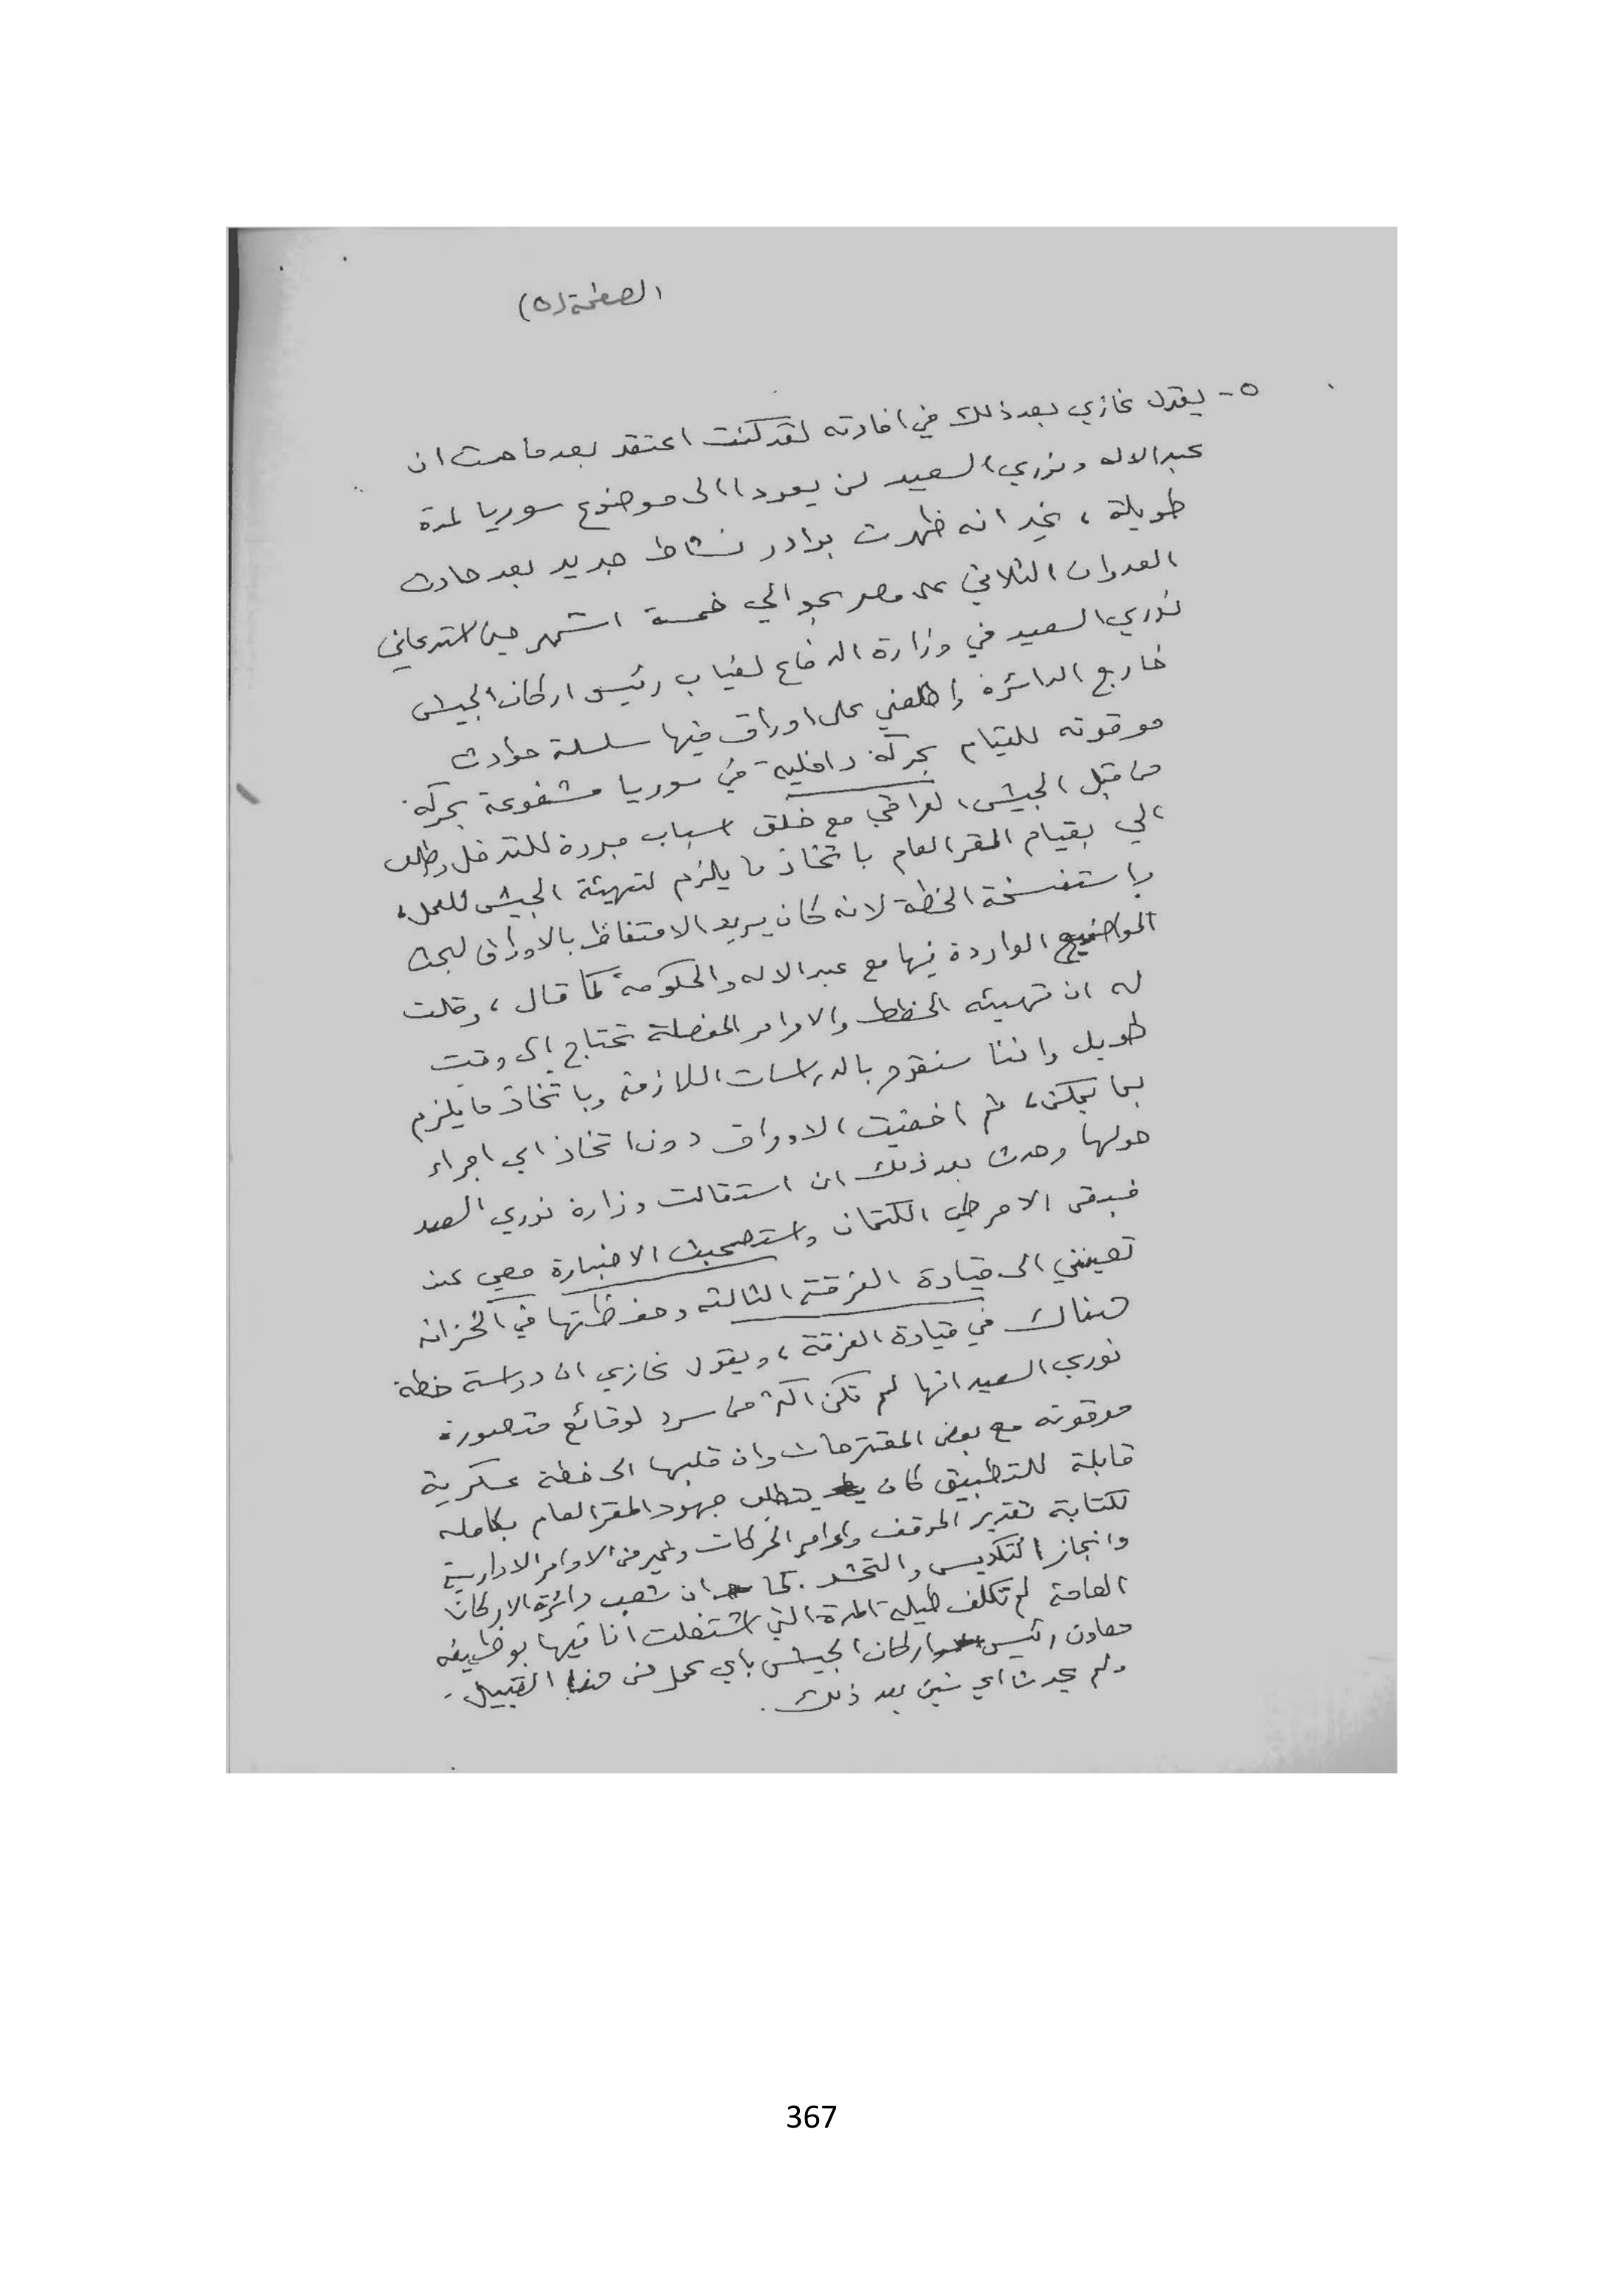 الصفحة (٥)
٥- يقول غازي بعد ذلك في افادته لقد كنت اعتقد بعدما حدث ان
عبدالاله ونوري السعيد لن يعودا الى موضوع سوريا لمدة
طويلة ، غير انه ظهرت بوادر نشاط جديد بعد حادث
العدوان الثلاثي على مصر بحوالي خمسة اشهر حين استدعاني
نوري السعيد في وزارة الدفاع لغياب رئيس اركان الجيش
خارج الدائرة وأطلعني على اوراق فيها سلسلة حوادث
موقوته للقيام بحركة داخلية في سوريا مشفوعة بحركة
من قبل الجيش العراقي مع خلق اسباب مبررة للتدخل وطلب
الي بقيام المقر العام باتخاذ ما يلزم لتهيئة الجيش للعمل ،
باستنسخة الخطة لانه كان يريد الاحتفاظ بالاوراق لبحث
المواضيع الواردة فيها مع عبدالاله والحكومة كما قال ، وقلت
له ان تهيئه الخطط والاوامر المفصلة تحتاج الى وقت
طويل واننا سنقوم بالدراسات اللازمة وباتخاذ ما يلزم
بما يمكن ، ثم اخفيت الاوراق دون اتخاذ اي اجراء
حولها وحدث بعد ذلك ان استقالت وزارة نوري السعيد
فبقى الامر طي الكتمان واستصحبت الاضبارة معي عند
تعييني الى قيادة الفرقة الثالثه وحفظتها في الخزانه
هناك في قيادة الفرقة ، ويقول غازي ان دراسة خطة
نوري السعيد انها لم تكن اكثر من سرد لوقائع متصورة
موقوته مع بعض المقترحات وان قلبها الى خطة عسكرية
قابلة للتطبيق كان يتطلب جهود المقر العام بكامله
لكتابة تقدير الموقف واوامر الحركات وغير من الاوامر الادارية
وانجاز التكديس والتحشد . كما ان شعب دائرة الاركان
العامة لم تكلف طيلة المدة التي اشتغلت انا فيها بوظيفه
معاون رئيس اركان الجيش باي عمل من هذا القبيل .
ولم يحدث اي شيئ بعد ذلك .
367